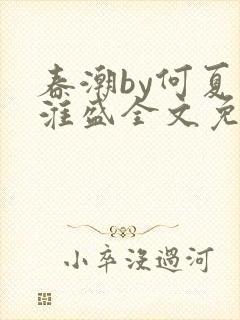 春潮by何夏
淮盛全文免
小卒没過河